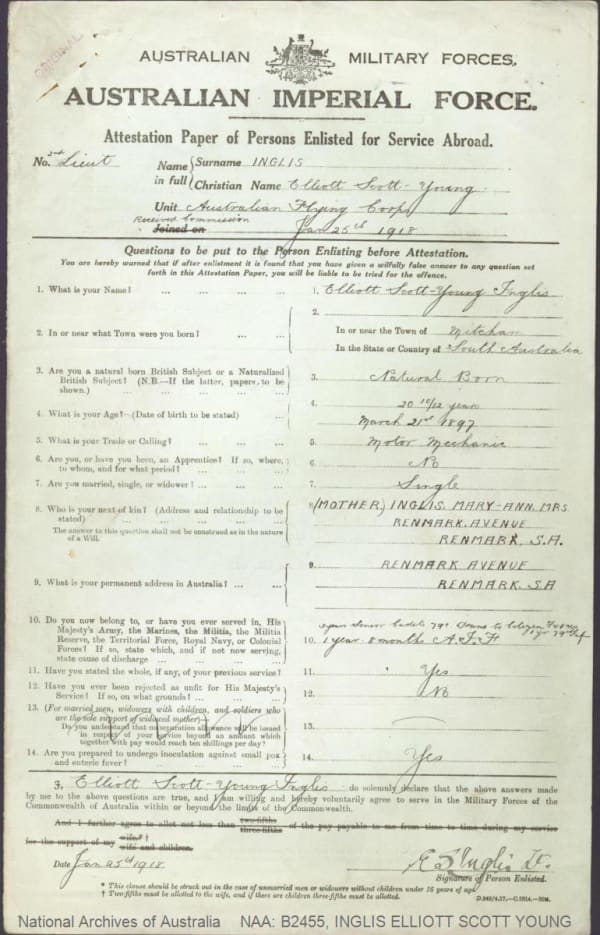 ORIGINAL
AUSTRALIAN MILITARY FORCES.
AUSTRALIAN IMPERIAL FORCE.
Attestation Paper of Persons Enlisted for Service Abroad.
No. 2nd Lieut
Name in full { Surname INGLIS
Christian Name Elliott Scott-Young
Unit Australian Flying Corps
Received Commission
Joined on Jan 25th 1918
Questions to be put to the Person Enlisting before Attestation.
You are hereby warned that if after enlistment it is found that you have given a wilfully false answer to any question set
forth in this Attestation Paper, you will be liable to be tried for the offence.
1. What is your Name? ... ... ... ...
1. Elliott Scott-Young Inglis
2. In or near what Town were you born? ... ...
2.
In or near the Town of Mitcham
In the State or Country of South Australia
3. Are you a natural born British Subject or a Naturalized
British Subject? (N.B.—If the latter, papers to be
shown.) ... ... ... ...
3. Natural Born
4. What is your Age?—(Date of birth to be stated) ...
4. 20 10/12 years
March 21st 1897
5. What is your Trade or Calling? ... ... ...
5. Motor Mechanic
6. Are you, or have you been, an Apprentice? If so, where,
to whom, and for what period? ... ... ...
6. No
7. Are you married, single, or widower? ... ... ...
7. Single
8. Who is your next of kin? (Address and relationship to be
stated) ... ... ... ...
The answer to this question shall not be construed as in the nature
of a Will.
8. (MOTHER) INGLIS. MARY-ANN. MRS
RENMARK. AVENUE
RENMARK, S.A.
9. What is your permanent address in Australia? ... ...
9. RENMARK AVENUE
RENMARK. S.A
10. Do you now belong to, or have you ever served in, His
Majesty's Army, the Marines, the Militia, the Militia
Reserve, the Territorial Force, Royal Navy, or Colonial
Forces? If so, state which, and if not now serving,
state cause of discharge ... ... ...
years Senior Cadets 79th Trans to Citizen Forces
1 yr 79th Inf
10. 1 year 8 months A.I.F
11. Have you stated the whole, if any, of your previous service?
11. Yes
12. Have you ever been rejected as unfit for His Majesty's
Service? If so, on what grounds? ... ...
12. No
13. (For married men, widowers with children, and soldiers who
are the sole support of widowed mother)—
Do you understand that no separation allowance will be issued
in respect of your service beyond an amount which
together with pay would reach ten shillings per day?
13. —
14. Are you prepared to undergo inoculation against small pox
and enteric fever? ... ... ...
14. Yes
I, Elliott Scott-Young Inglis do solemnly declare that the above answers made
by me to the above questions are true, and I am willing and hereby voluntarily agree to serve in the Military Forces of the
Commonwealth of Australia within or beyond the limits of the Commonwealth.
And I further agree to allot not less than two-fifths three-fifths of the pay payable to me from time to time during my service
for the support of my wife.* † wife and children.
Date Jan 25th 1918
E S Inglis Lt.
Signature of Person Enlisted.
* This clause should be struck out in the case of unmarried men or widowers without children under 16 years of age
† Two-fifths must be allotted to the wife, and if there are children three-fifths must be allotted.
National Archives of Australia NAA: B2455, INGLIS ELLIOTT SCOTT YOUNG